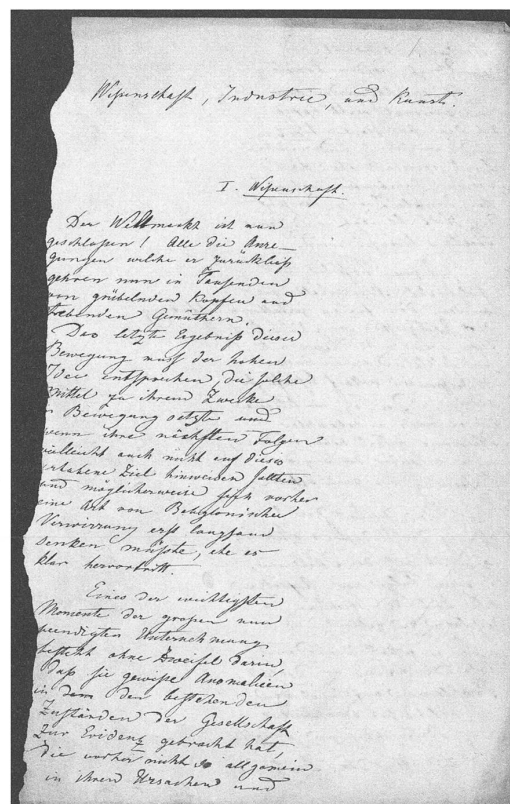 1.
Wissenschaft, Industrie, und Kunst.
I. Wissenschaft.
Der Weltmarkt ist nun
geschlossen! Alle die Anre-
gungen welche er zurückließ
gehren nun in Tausenden
von grübelnden Köpfen und
Gemüthern.
Das letzte Ergebniß dieser
Bewegung muß der hohen
Idee entsprechen, die solche
Mittel zu ihrem Zwecke
Bewegung setzte und
wenn ihre nächsten Folgen
vielleicht auch nicht auf dieses
erhabene Ziel hinweisen sollten
und möglicherweise sich vorher
eine Art von Babylonischer
Verwirrung erst langsam
senken müßte, ehe es
klar hervortritt.
Eines der wichtigsten
Momente der großen nun
beendigten Unternehmung
besteht ohne Zweifel darin,
daß sie gewisse Anomalieen
in dem den bestehenden
Zuständen der Gesellschaft
zur Evidenz gebracht hat,
die vorher nicht so allgemein
in ihren Ursachen und